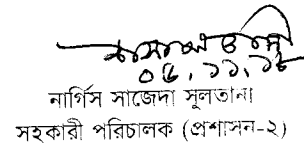 ০৫.১১.১৮
নার্গিস সাজেদা সুলতানা
সহকারী পরিচালক (প্রশাসন-২)